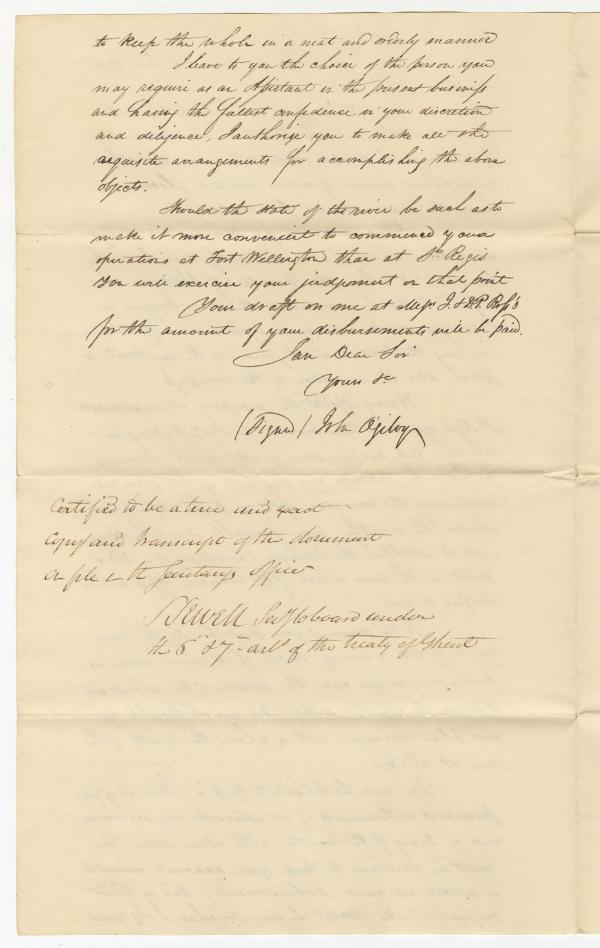 to keep the whole in a neat and orderly manner
I leave to you the choice of the person you
may require as an Assistant in the present business
and having the fullest confidence in your discretion
and diligence, I authorize you to make all the
requisite arrangements for accomplishing the above
objects.
Should the state of the river be such as to
make it more convenient to commence your
operations at Fort Wellington than at St. Regis
You will exercise your judgement on that point
Your draft on me at Messrs J. & D.P. Ross's
for the amount of your disbursements will be paid.
I am Dear Sir
Yours &c
(Signed) John Ogilvy
Certified to be a true and exact
copy and transcript of the document
on file in the Secretarys office
S Sewell Secy to board under
the 6th & 7- arts of the treaty of Ghent